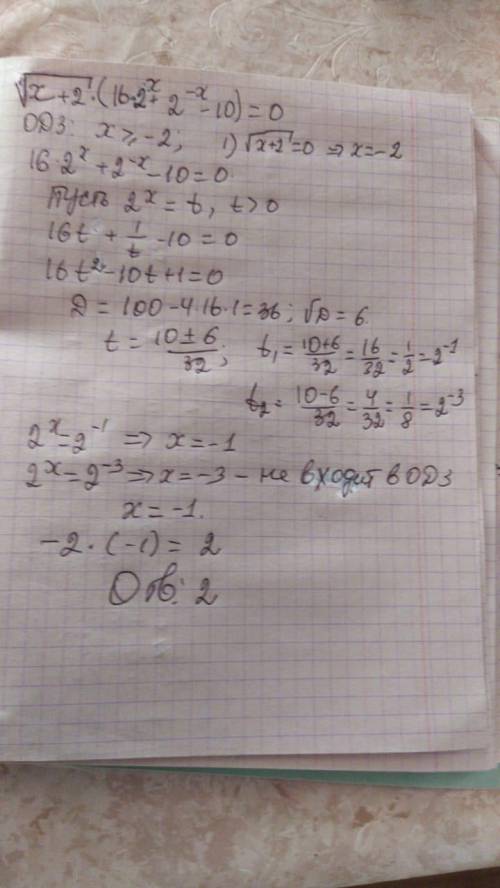 √x+2 · (16·2ˣ + 2⁻ˣ - 10) = 0
ОДЗ: x ≥ -2; 1) √x+2 = 0 ⇒ x = -2
16·2ˣ + 2⁻ˣ - 10 = 0
Пусть 2ˣ = t, t > 0
16t + 1/t - 10 = 0
16t² - 10t + 1 = 0
D = 100 - 4·16·1 = 36; √D = 6
t = 10±6/32; t₁ = 10+6/32 = 16/32 = 1/2 = 2⁻¹
t₂ = 10-6/32 = 4/32 = 1/8 = 2⁻³
2ˣ = 2⁻¹ ⇒ x = -1
2ˣ = 2⁻³ ⇒ x = -3 - не входит в ОДЗ
x = -1.
-2 · (-1) = 2
Отв: 2